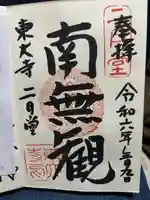 奉拝
令和六年三月九日
二月堂
南無観
東大寺 二月堂